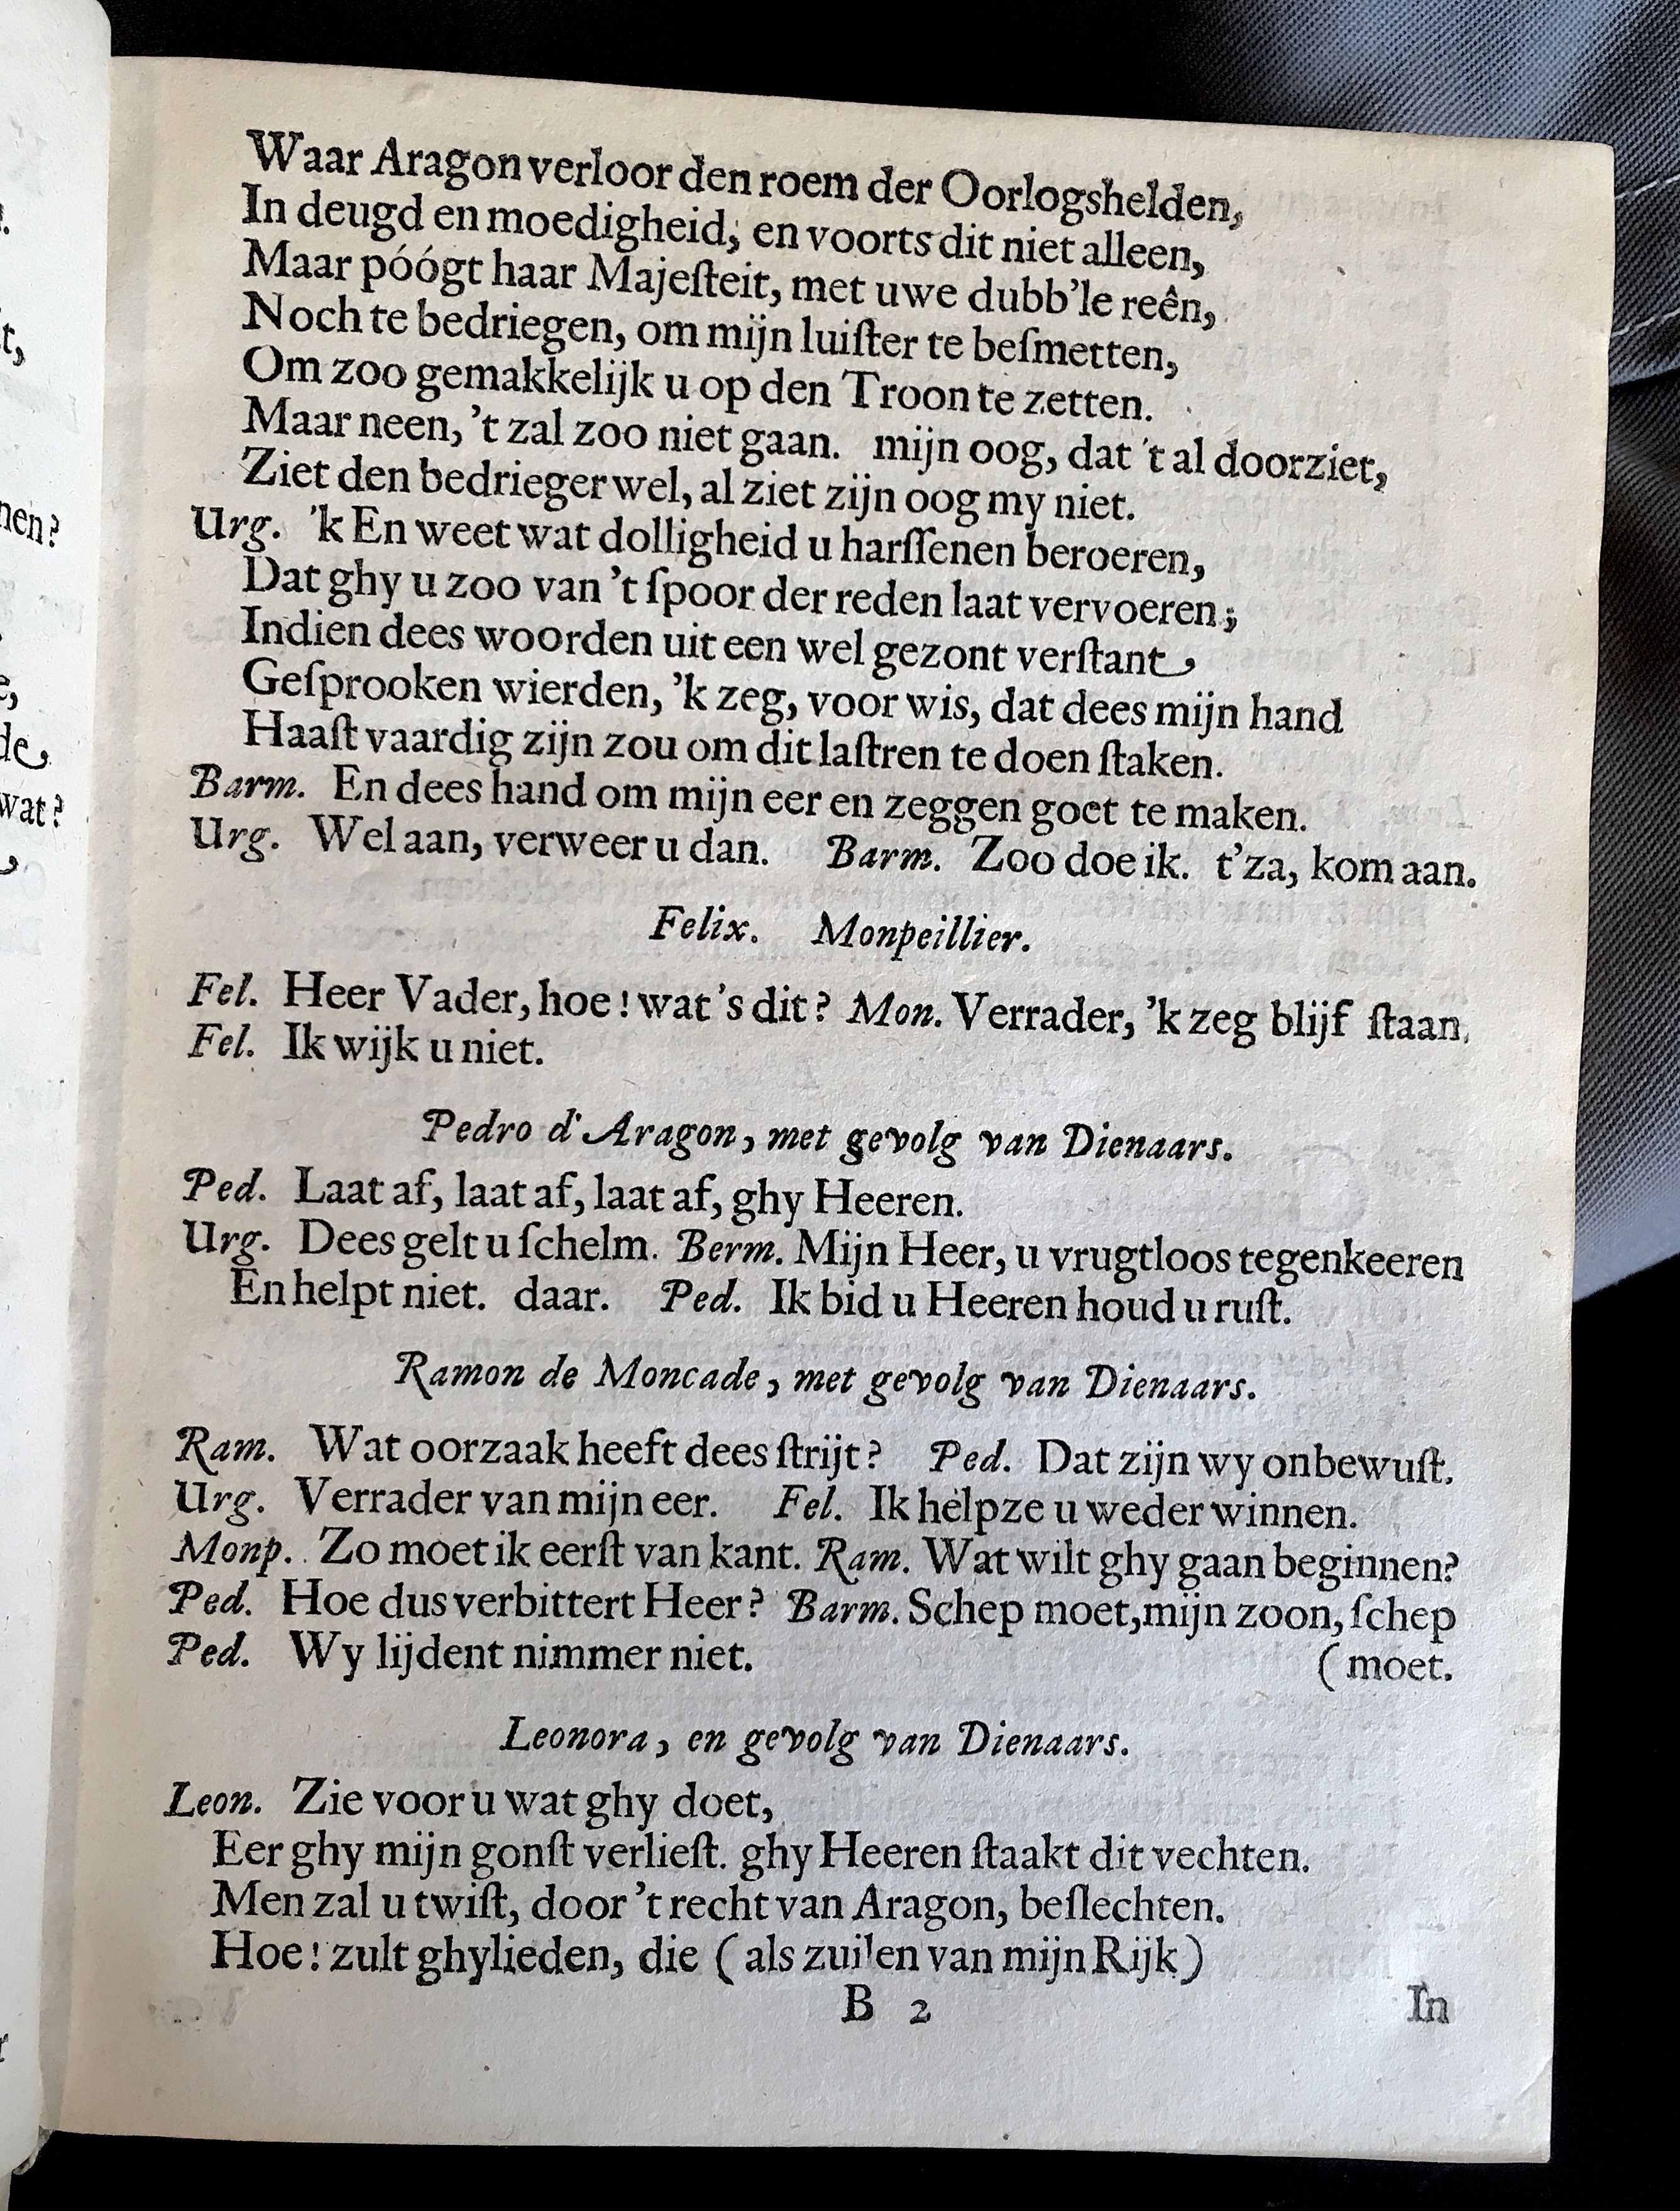 Waar Aragon verloor den roem der Oorlogshelden,
In deugd en moedigheid; en voorts dit niet alleen,
Maar póógt haar Majeſteit, met uwe dubb'le reên,
Noch te bedriegen, om mijn luiſter te beſmetten,
Om zoo gemakkelijk u op den Troon te zetten.
Maar neen, 't zal zoo niet gaan. mijn oog, dat 't al doorziet,
Ziet den bedrieger wel, al ziet zijn oog my niet.
Urg. 'k En weet wat dolligheid u harſſenen beroeren,
Dat ghy u zoo van 't ſpoor der reden laat vervoeren;
Indien dees woorden uit een wel gezont verſtant,
Geſprooken wierden, 'k zeg, voor wis, dat dees mijn hand
Haaſt vaardig zijn zou om dit laſtren te doen ſtaken.
Barm. En dees hand om mijn eer en zeggen goet te maken.
Urg. Wel aan, verweer u dan. Barm. Zoo doe ik. t'za, kom aan.
Felix. Monpeillier.
Fel. Heer Vader, hoe! wat 's dit? Mon. Verrader, 'k zeg blijf ſtaan.
Fel. Ik wijk u niet.
Pedro d'Aragon, met gevolg van Dienaars.
Ped. Laat af, laat af, laat af, ghy Heeren.
Urg. Dees gelt u ſchelm. Berm. Mijn Heer, u vrugtloos tegenkeeren
En helpt niet. daar. Ped. Ik bid u Heeren houd u ruſt.
Ramon de Moncade, met gevolg van Dienaars.
Ram. Wat oorzaak heeft dees ſtrijt? Ped. Dat zijn wy onbewuſt.
Urg. Verrader van mijn eer. Fel. Ik helpze u weder winnen.
Monp. Zo moet ik eerſt van kant. Ram. Wat wilt ghy gaan beginnen?
Ped. Hoe dus verbittert Heer? Barm. Schep moet, mijn zoon, ſchep
Ped. Wy lijdent nimmer niet. (moet.
Leonora, en gevolg van Dienaars.
Leon. Zie voor u wat ghy doet,
Eer ghy mijn gonſt verlieſt. ghy Heeren ſtaakt dit vechten.
Men zal u twiſt, door 't recht van Aragon, beſlechten.
Hoe! zult ghylieden, die (als zuilen van mijn Rijk)
B 2 In